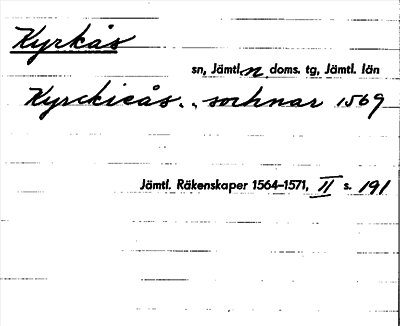 Kyrkås
sn, Jämtl. n doms. tg, Jämtl. län
Kyrckieås., sochnar 1569
Jämtl. Räkenskaper 1564-1571, II s. 191